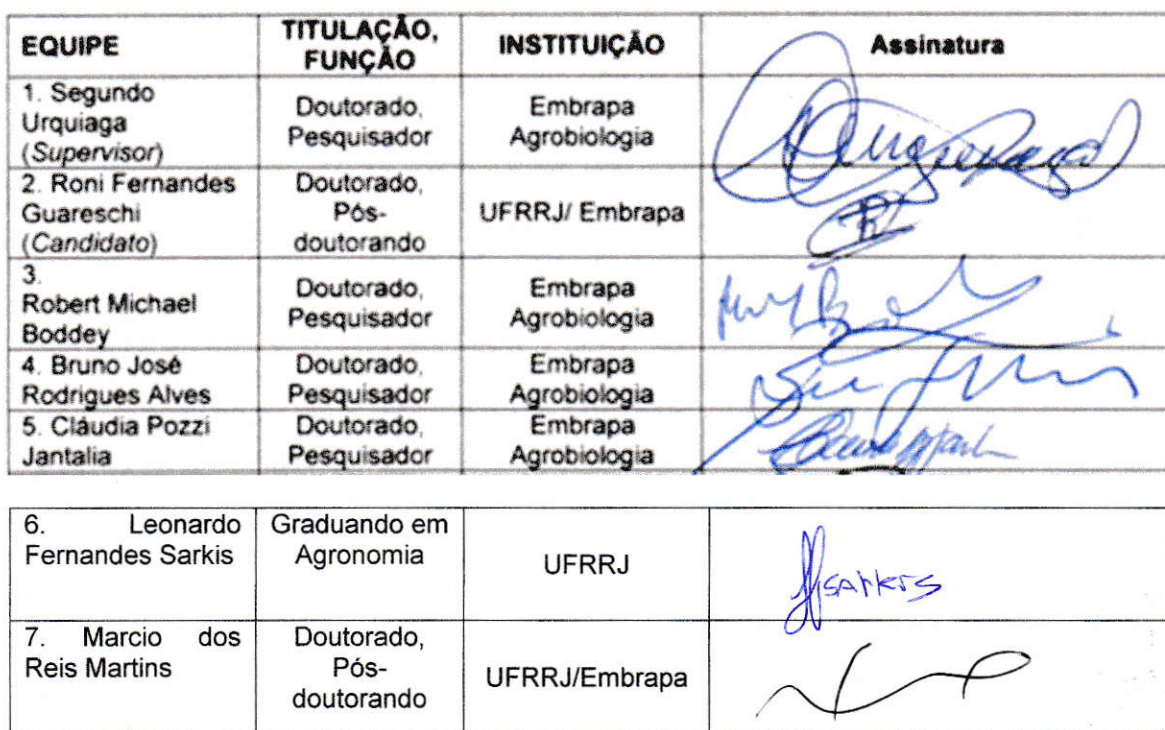 EQUIPE
TITULAÇÃO,
FUNÇÃO
INSTITUIÇÃO
Assinatura
1. Segundo
Urquiaga
(Supervisor)
Doutorado,
Pesquisador
Embrapa
Agrobiologia
2. Roni Fernandes
Guareschi
(Candidato)
Doutorado,
Pós-
doutorando
UFRRJ/ Embrapa
3.
Robert Michael
Boddey
Doutorado,
Pesquisador
Embrapa
Agrobiologia
4. Bruno José
Rodrigues Alves
Doutorado,
Pesquisador
Embrapa
Agrobiologia
5. Cláudia Pozzi
Jantalia
Doutorado,
Pesquisador
Embrapa
Agrobiologia
6. Leonardo
Fernandes Sarkis
Graduando em
Agronomia
UFRRJ
7. Marcio dos
Reis Martins
Doutorado,
Pós-
doutorando
UFRRJ/Embrapa